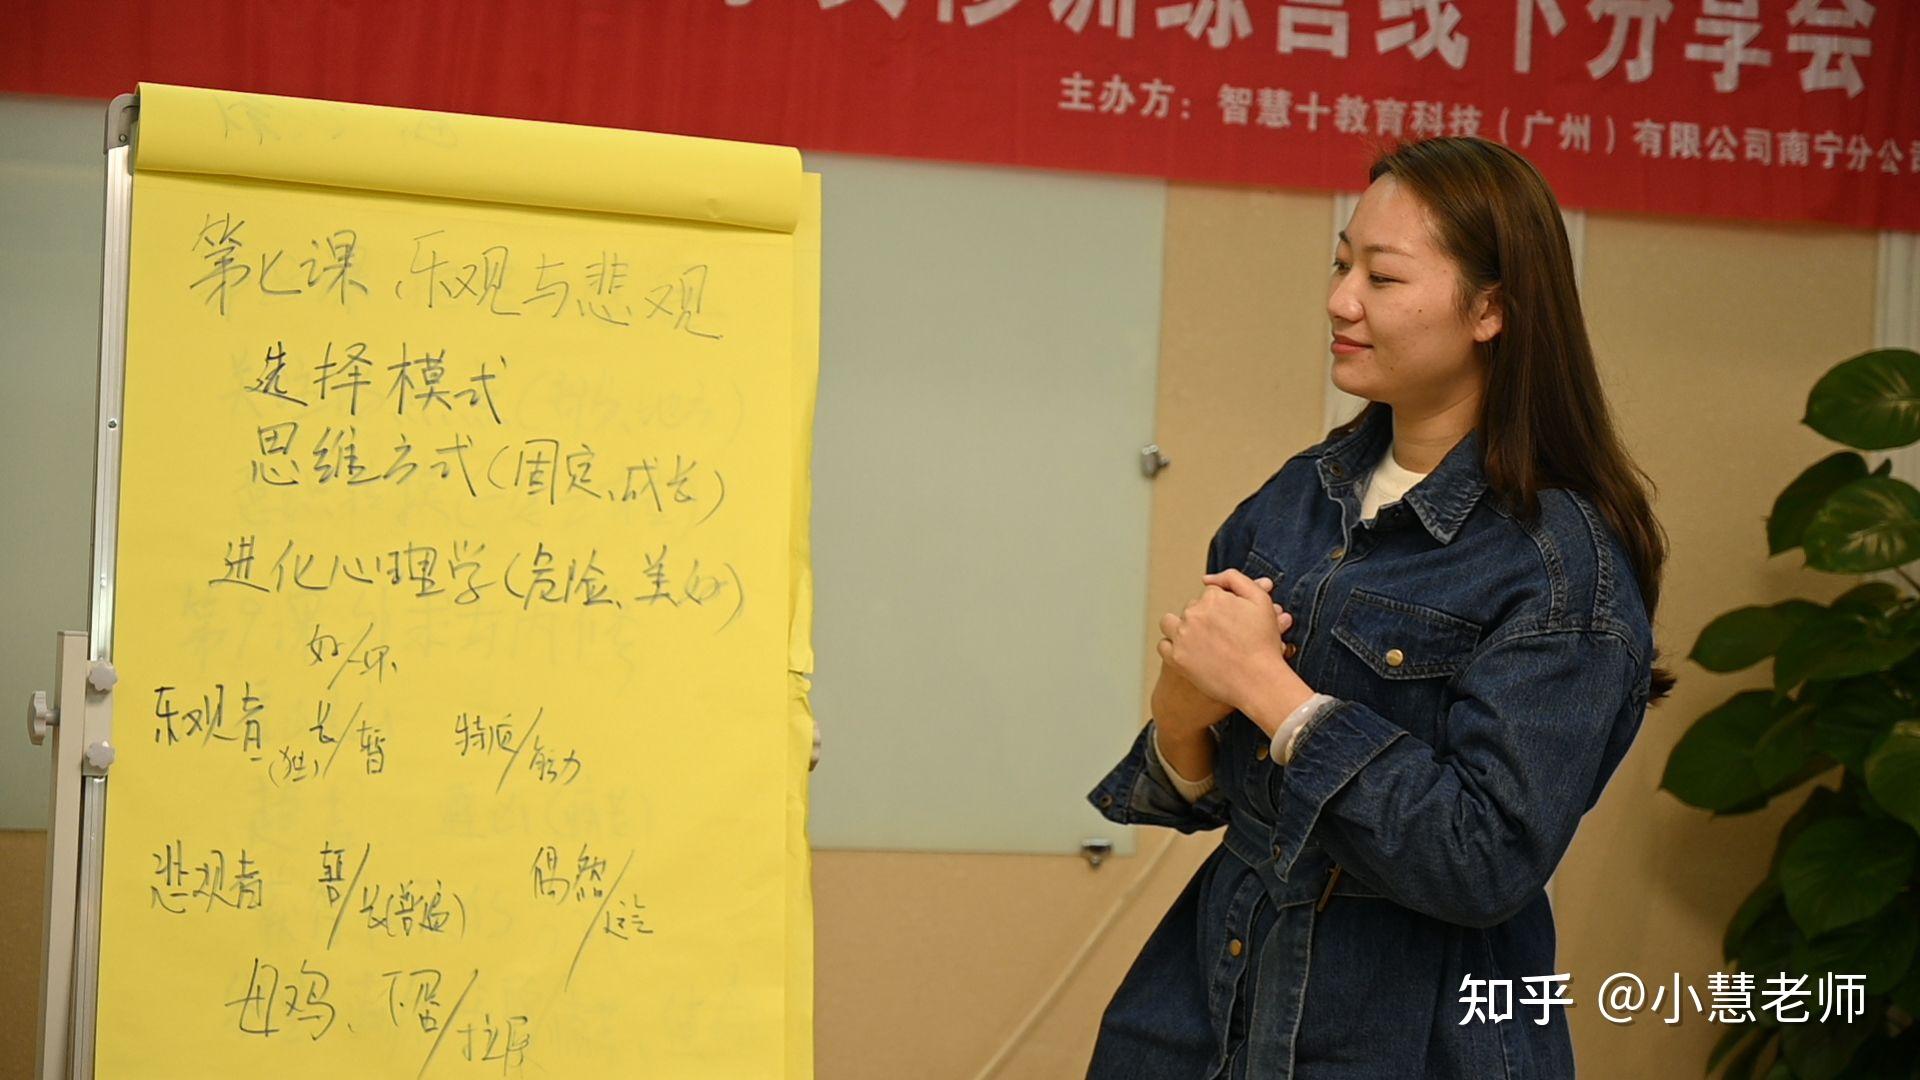 训综合线下分享会
主办方：智慧十教育科技（广州）有限公司南宁分公司
第七课、乐观与悲观
选择模式
思维方式（固定、成长）
进化心理学（危险、美好）
好/坏
乐观者 长/暂 特质/能力
悲观者 暂/长（普遍） 偶然/
母鸡、下蛋/拉屎
知乎 @小慧老师